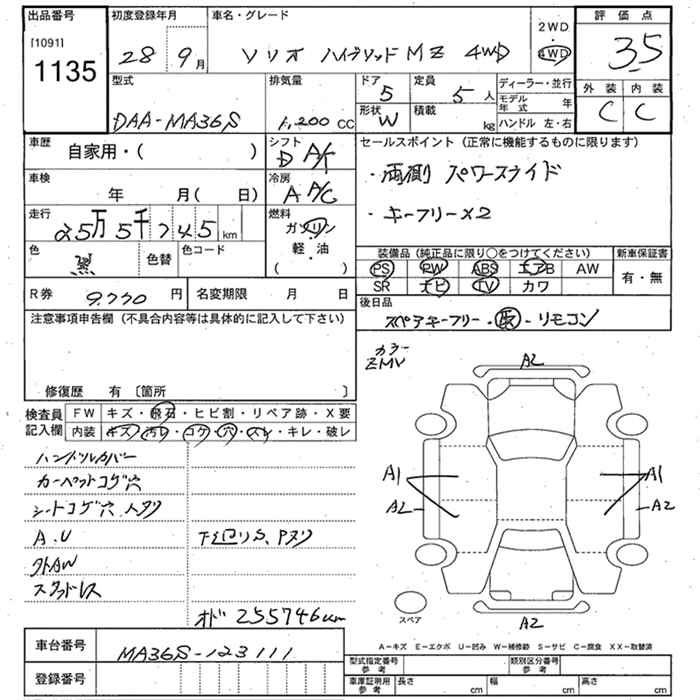 出品番号
[1091]
1135
初度登録年月
28 9月
車名・グレード
ソリオ ハイブリッド MZ 4WD
2WD
4WD
評価点
3.5
外装 内装
C C
型式
DAA-MA36S
排気量
1,200 CC
ドア
5
定員
5 人
形状
W
積載
kg
ディーラー・並行
モデル年式 年
ハンドル 左・右
車歴
自家用・( )
シフト
D A/T
車検
年 月( 日)
冷房
A A/C
走行
25万5千745km
燃料
ガソリン
軽・油
( )
色
黒
色替
色コード
R券 9,770 円
名変期限 月 日
セールスポイント (正常に機能するものに限ります)
・両側 パワースライド
・キーフリー×2
装備品 (純正品に限り○をつけてください)
PS PW ABS エアB AW
SR ナビ TV カワ
新車保証書
有・無
後日品
スペアキーフリー・取・リモコン
注意事項申告欄 (不具合内容等は具体的に記入して下さい)
修復歴 有 〔箇所 〕
検査員記入欄
FW キズ・飛石・ヒビ割・リペア跡・X要
内装 キズ・汚レ・コゲ・穴・スレ・キレ・破レ
ハンドルカバー
カーペットコゲ穴
シートコゲ穴、ヘタリ
A.U
外AW
スタッドレス
下廻りS、Pヌリ
オド 255746km
カラー
ZMV
A2
A1 A1
A2 A2
A2
スペア
A－キズ E－エクボ U－凹み W－補修跡 S－サビ C－腐食 XX－取替済
車台番号
MA36S-123111
登録番号
型式指定番号
参考
類別区分番号
参考
車庫証明用
参考
長さ cm
幅 cm
高さ cm